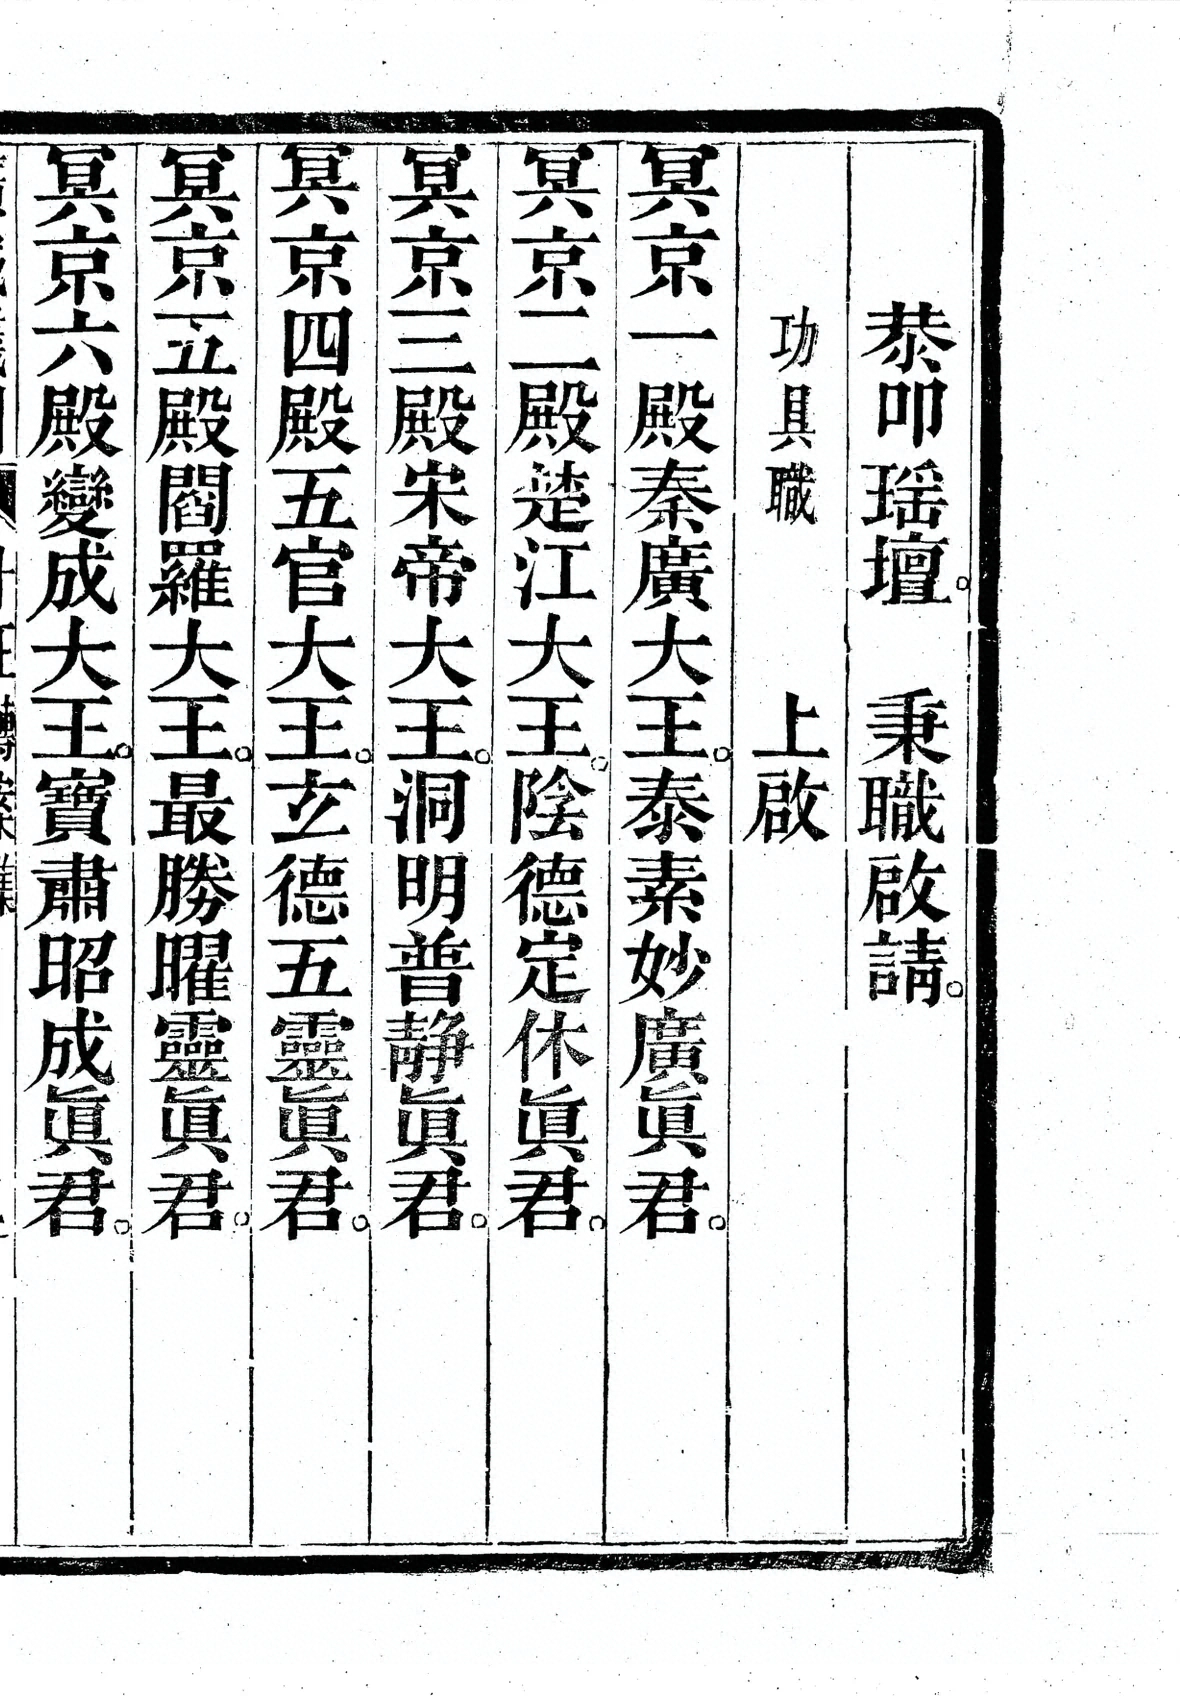 恭叩瑶壇。　秉職啟請。
功具職　上啟
冥京一殿秦廣大王。泰素妙廣眞君。
冥京二殿楚江大王。陰德定休眞君。
冥京三殿宋帝大王。洞明普静眞君。
冥京四殿五官大王。玄德五靈眞君。
冥京五殿閻羅大王。最勝曜靈眞君。
冥京六殿變成大王。寶肅昭成眞君。